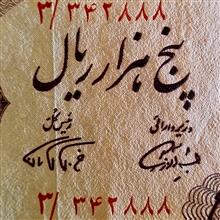 ۳/۳۴۲۸۸۸
پنج هزار ریال
وزیر دارائی
رئیس کل
۳/۳۴۲۸۸۸